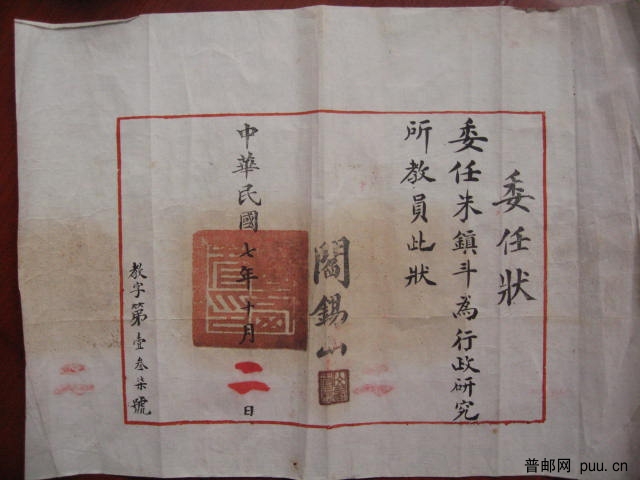 委任狀
委任朱鎮斗為行政研究
所教員此狀
閻錫山
中華民國七年十月二一日
教字第壹叁柒號
普邮网 puu.cn